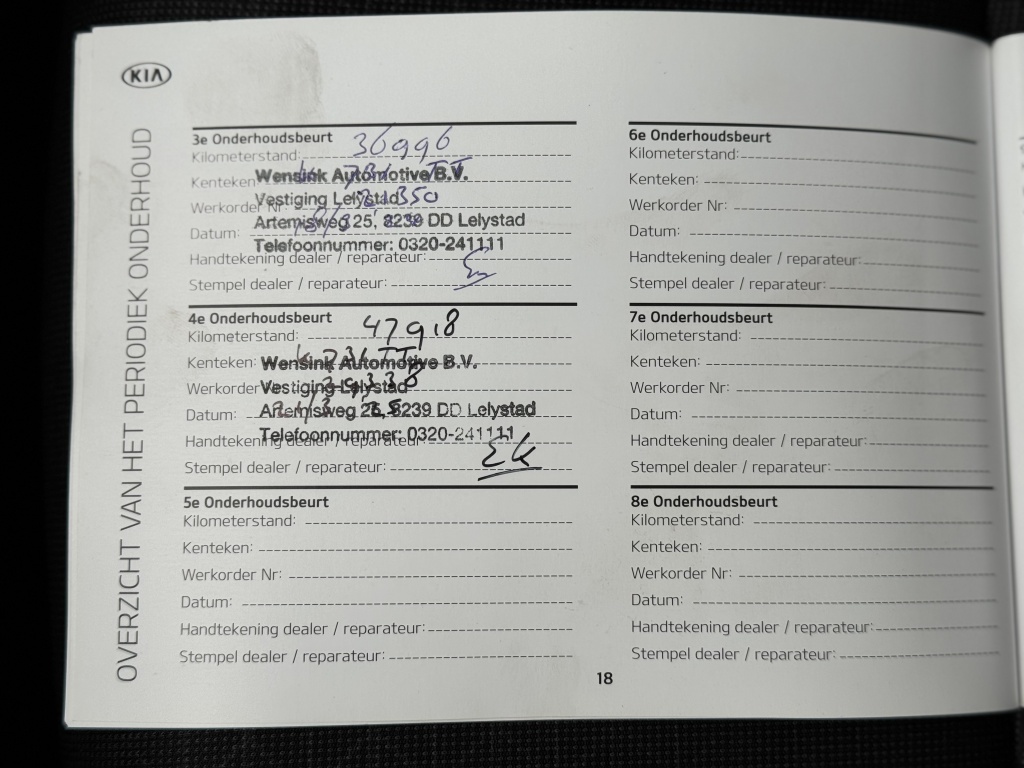 KIA
OVERZICHT VAN HET PERIODIEK ONDERHOUD
3e Onderhoudsbeurt
Kilometerstand: 36996
Kenteken
Wensink Automotive B.V.
Vestiging Lelystad
Werkorder Nr
Artemisweg 25, 8239 DD Lelystad
Datum:
Telefoonnummer: 0320-241111
Handtekening dealer / reparateur:
Stempel dealer / reparateur:
4e Onderhoudsbeurt
Kilometerstand: 47918
Kenteken:
Wensink Automotive B.V.
Werkorder
Vestiging Lelystad
Datum:
Artemisweg 25, 8239 DD Lelystad
Telefoonnummer: 0320-241111
Handtekening dealer / reparateur:
Stempel dealer / reparateur:
5e Onderhoudsbeurt
Kilometerstand:
Kenteken:
Werkorder Nr:
Datum:
Handtekening dealer / reparateur:
Stempel dealer / reparateur:
6e Onderhoudsbeurt
Kilometerstand:
Kenteken:
Werkorder Nr:
Datum:
Handtekening dealer / reparateur:
Stempel dealer / reparateur:
7e Onderhoudsbeurt
Kilometerstand:
Kenteken:
Werkorder Nr:
Datum:
Handtekening dealer / reparateur:
Stempel dealer / reparateur:
8e Onderhoudsbeurt
Kilometerstand:
Kenteken:
Werkorder Nr:
Datum:
Handtekening dealer / reparateur:
Stempel dealer / reparateur:
18